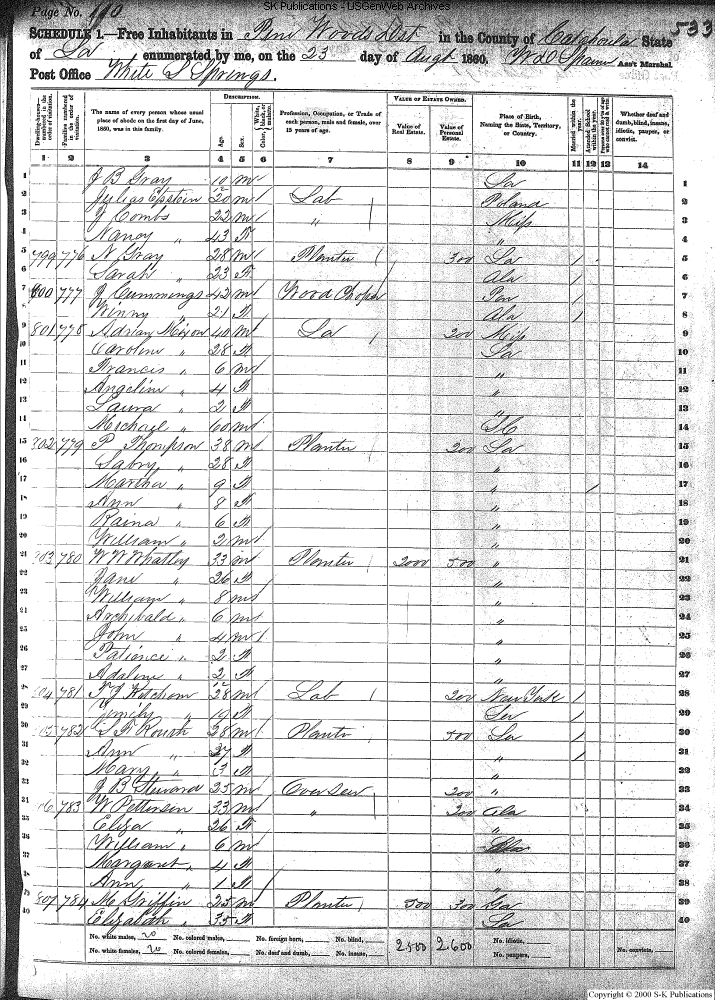 SK Publications - USGenWeb Archives
Page No. 110
533
SCHEDULE 1.—Free Inhabitants in Pine Woods Dist in the County of Catahoula State
of La enumerated by me, on the 23 day of Augt 1860. Ass't Marshal
Post Office White S Springs.
Dwelling-houses—numbered in the order of visitation.
Families numbered in the order of visitation.
The name of every person whose usual place of abode on the first day of June, 1860, was in this family.
DESCRIPTION.
Age.
Sex.
Color, White, black, or mulatto.
Profession, Occupation, or Trade of each person, male and female, over 15 years of age.
VALUE OF ESTATE OWNED.
Value of Real Estate.
Value of Personal Estate.
Place of Birth, Naming the State, Territory, or Country.
Married within the year.
Attended School within the year.
Persons over 20 y'rs of age who cannot read & write.
Whether deaf and dumb, blind, insane, idiotic, pauper, or convict.
1 2 3 4 5 6 7 8 9 10 11 12 13 14
1 J B Gray 10/12 m La 1
2 Julias Epstein 20 m Lab Poland 2
3 J Combs 22 m " Miss 3
4 Nancy " 43 F " 4
5 799 776 N Gray 28 m Planter 300 La / 5
6 Sarah " 23 F Ala / 6
7 800 777 J Cummings 42 m Wood Choper Pen / 7
8 Winny " 21 F Ala / 8
9 801 778 Adrian Mixon 40 m La 200 Miss 9
10 Caroline " 28 F La 10
11 Francis " 6 m " 11
12 Angeline " 4 F " 12
13 Laura " 2 F " 13
14 Michael " 60 m SC 14
15 802 779 P Thompson 38 m Planter 200 La 15
16 " 28 F " 16
17 Martha " 9 F " / 17
18 Ann " 8 F " 18
19 Raina " 6 F " 19
20 William " 2 m " 20
21 803 780 W W Whatley 33 m Planter 2000 500 " 21
22 Jane " 26 F " 22
23 William " 8 m " 23
24 Archibald " 6 m " 24
25 John " 4 m " 25
26 Patience " 2 F " 26
27 Adaline " 2/12 F " 27
28 804 781 28 m Lab 200 New York / 28
29 " 19 F La / 29
30 805 782 Roush 28 m Planter 500 La / 30
31 Ann " 27 F " / 31
32 Mary " 3 F " 32
33 J B Steward 25 m Overseer 200 " 33
34 806 783 W Petterson 33 m " 200 Ala 34
35 Eliza " 26 F " 35
36 William " 6 m 36
37 Margaret " 4 F " 37
38 Ann " 1 F " 38
39 807 784 M Griffin 25 m Planter 500 300 Ga 39
40 Elizabeth " 35 F La 40
No. white males, 20 No. colored males, No. foreign born, No. blind, 2,500 2,600 No. idiotic,
No. white females, 20 No. colored females, No. deaf and dumb, No. insane, No. paupers, No. convicts,
Copyright © 2000 S-K Publications